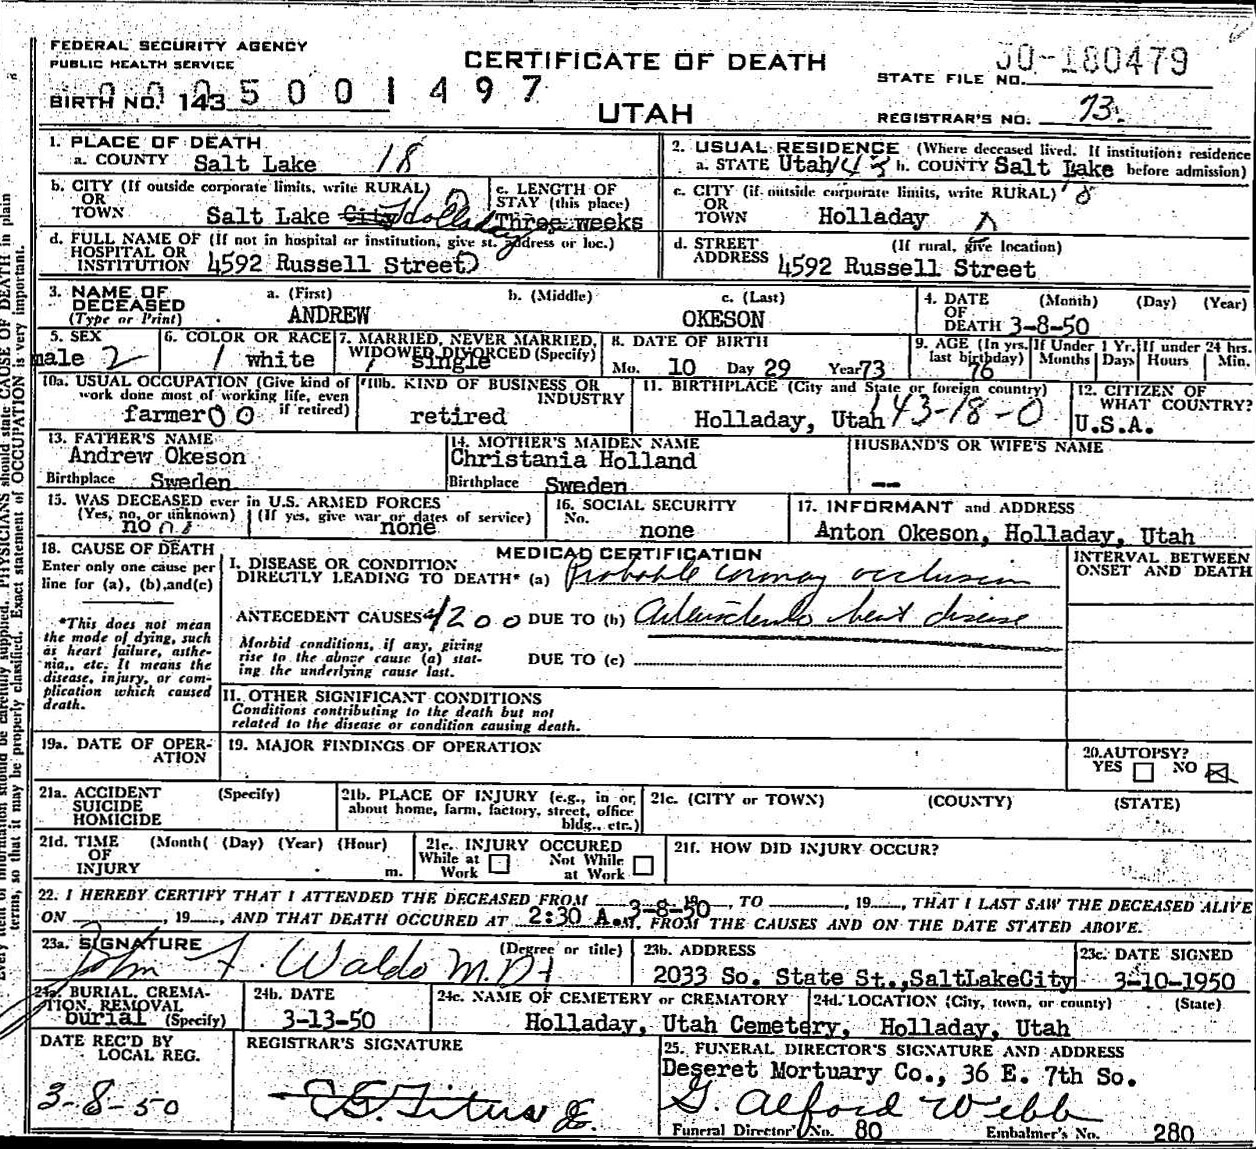 FEDERAL SECURITY AGENCY
PUBLIC HEALTH SERVICE
CERTIFICATE OF DEATH
UTAH
STATE FILE NO. 50-180479
BIRTH NO. 143 0005001497
REGISTRAR'S NO. 73.
1. PLACE OF DEATH
a. COUNTY Salt Lake 18
b. CITY (If outside corporate limits, write RURAL)
OR
TOWN Salt Lake City Holladay
c. LENGTH OF
STAY (this place)
Three weeks
d. FULL NAME OF (If not in hospital or institution, give st. address or loc.)
HOSPITAL OR
INSTITUTION 4592 Russell Street
2. USUAL RESIDENCE (Where deceased lived. If institution: residence
a. STATE Utah 143 b. COUNTY Salt Lake before admission)
c. CITY (if outside corporate limits, write RURAL) 18
OR
TOWN Holladay
d. STREET (If rural, give location)
ADDRESS 4592 Russell Street
3. NAME OF
DECEASED
(Type or Print)
a. (First) b. (Middle) c. (Last)
ANDREW OKESON
4. DATE (Month) (Day) (Year)
OF
DEATH 3-8-50
5. SEX
male 2
6. COLOR OR RACE
1 white
7. MARRIED, NEVER MARRIED,
WIDOWED, DIVORCED (Specify)
1 single
8. DATE OF BIRTH
Mo. 10 Day 29 Year 73
9. AGE (In yrs. last birthday) 76
If Under 1 Yr. Months Days
If under 24 hrs. Hours Min.
10a. USUAL OCCUPATION (Give kind of
work done most of working life, even
if retired)
farmer 00
10b. KIND OF BUSINESS OR
INDUSTRY
retired
11. BIRTHPLACE (City and State or foreign country)
Holladay, Utah 143-18-0
12. CITIZEN OF
WHAT COUNTRY?
U.S.A.
13. FATHER'S NAME
Andrew Okeson
Birthplace Sweden
14. MOTHER'S MAIDEN NAME
Christania Holland
Birthplace Sweden
HUSBAND'S OR WIFE'S NAME
--
15. WAS DECEASED ever in U.S. ARMED FORCES
(Yes, no, or unknown) (If yes, give war or dates of service)
no none
16. SOCIAL SECURITY
No. none
17. INFORMANT and ADDRESS
Anton Okeson, Holladay, Utah
18. CAUSE OF DEATH
Enter only one cause per
line for (a), (b),and(c)
*This does not mean
the mode of dying, such
as heart failure, asthe-
nia,, etc. It means the
disease, injury, or com-
plication which caused
death.
MEDICAL CERTIFICATION
I. DISEASE OR CONDITION
DIRECTLY LEADING TO DEATH* (a) Probable coronary occlusion
ANTECEDENT CAUSES 4200 DUE TO (b) heart disease
Morbid conditions, if any, giving
rise to the above cause (a) stat-
ing the underlying cause last.
DUE TO (c)
II. OTHER SIGNIFICANT CONDITIONS
Conditions contributing to the death but not
related to the disease or condition causing death.
INTERVAL BETWEEN
ONSET AND DEATH
19a. DATE OF OPER-
ATION
19. MAJOR FINDINGS OF OPERATION
20. AUTOPSY?
YES NO
21a. ACCIDENT (Specify)
SUICIDE
HOMICIDE
21b. PLACE OF INJURY (e.g., in or
about home, farm, factory, street, office
bldg., etc.)
21c. (CITY or TOWN) (COUNTY) (STATE)
21d. TIME (Month( (Day) (Year) (Hour)
OF
INJURY m.
21e. INJURY OCCURED
While at Work Not While at Work
21f. HOW DID INJURY OCCUR?
22. I HEREBY CERTIFY THAT I ATTENDED THE DECEASED FROM 3-8-50, 19 TO , 19 , THAT I LAST SAW THE DECEASED ALIVE
ON , 19 , AND THAT DEATH OCCURED AT 2:30 A.M. FROM THE CAUSES AND ON THE DATE STATED ABOVE.
23a. SIGNATURE (Degree or title)
John F. Waldo M.D.
23b. ADDRESS
2033 So. State St.,SaltLakeCity
23c. DATE SIGNED
3-10-1950
24a. BURIAL, CREMA-
TION, REMOVAL
burial (Specify)
24b. DATE
3-13-50
24c. NAME OF CEMETERY or CREMATORY
Holladay, Utah Cemetery,
24d. LOCATION (City, town, or county) (State)
Holladay, Utah
DATE REC'D BY
LOCAL REG.
3-8-50
REGISTRAR'S SIGNATURE
Titus
25. FUNERAL DIRECTOR'S SIGNATURE AND ADDRESS
Deseret Mortuary Co., 36 E. 7th So.
G. Alford Webb
Funeral Director's No. 80 Embalmer's No. 280